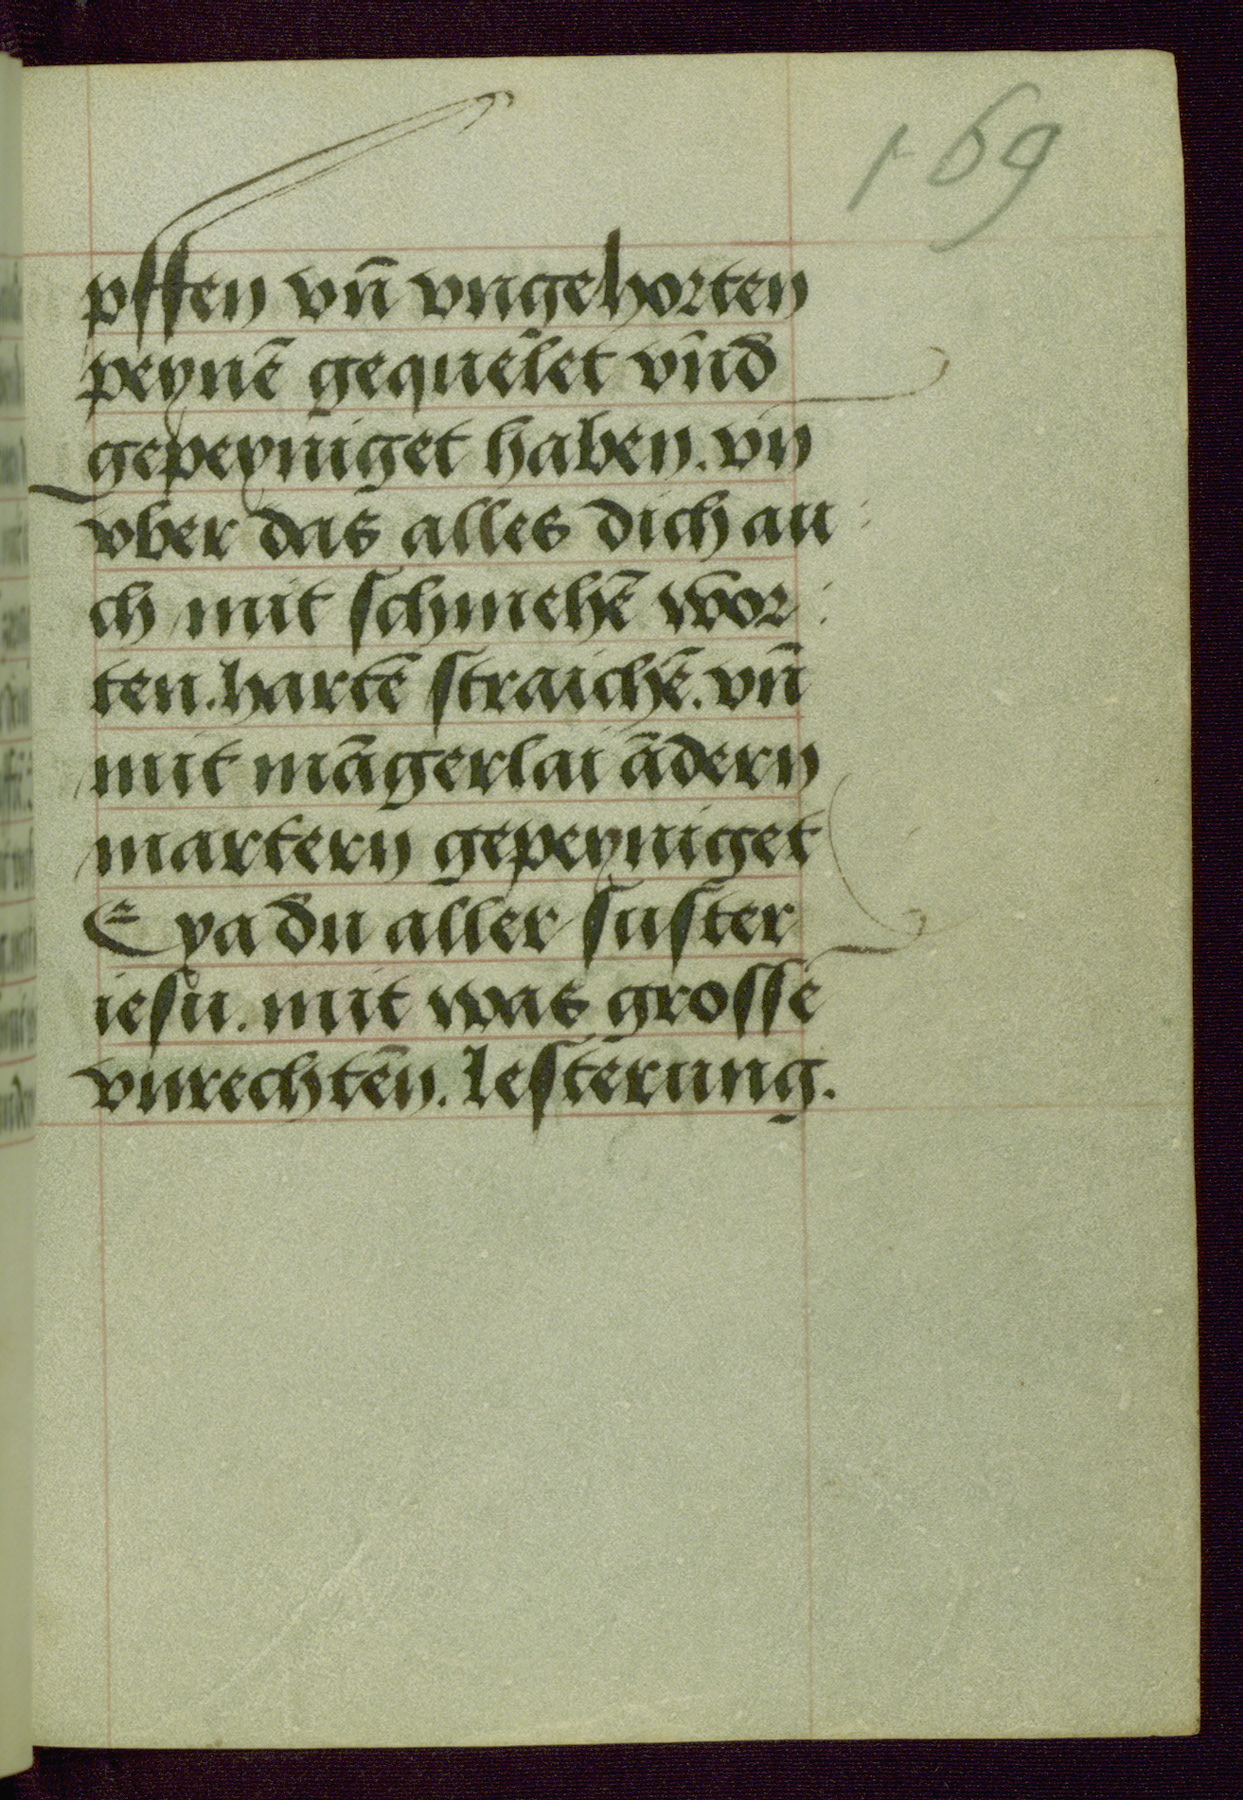 169
pffen vn̄ vngehorten
peynē gequelet vn̄d
gepeyniget haben. vn
vber das alles dich au:
ch mit schmehē wor:
ten. hartē straichē. vn̄
mit māgerlai ādern
martern gepeyniget
Eya du aller suster
iesu. mit was grossē
vnrechtēn. lesterung.